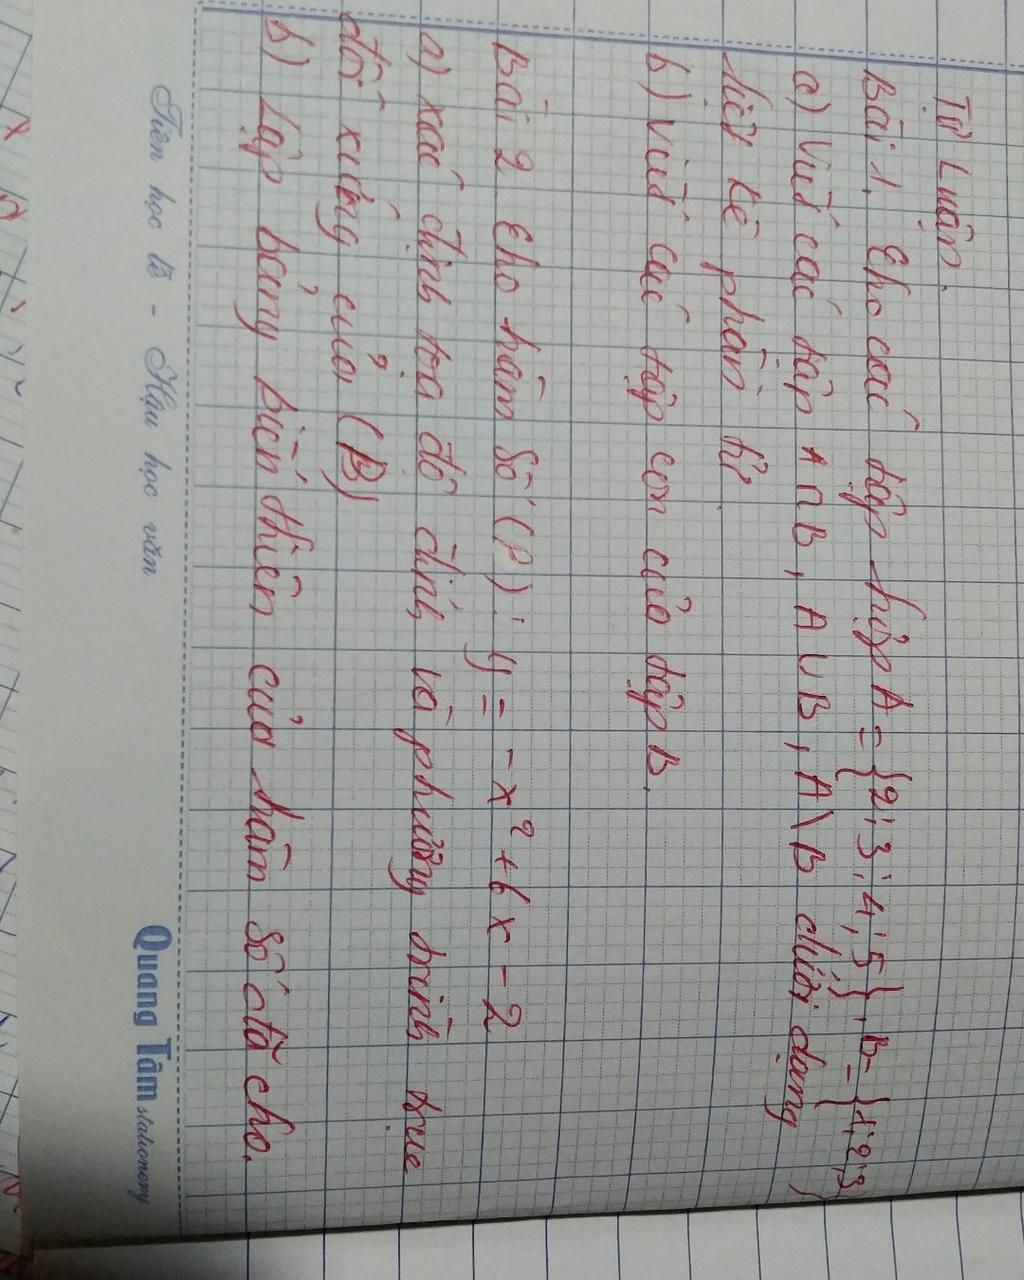 Tự Luận.
Bài 1. Cho các tập hợp A = {2; 3; 4; 5}, B = {1; 2; 3}
a) Viết các tập A ∩ B, A ∪ B, A \ B dưới dạng
liệt kê phần tử.
b) Viết các tập con của tập B.
Bài 2 Cho hàm số (P): y = -x² + 6x - 2
a) xác định tọa độ đỉnh và phương trình trục
đối xứng của (P)
b) Lập bảng biến thiên của hàm số đã cho.
Tiên học lễ - Hậu học văn
Quang Tâm stationery